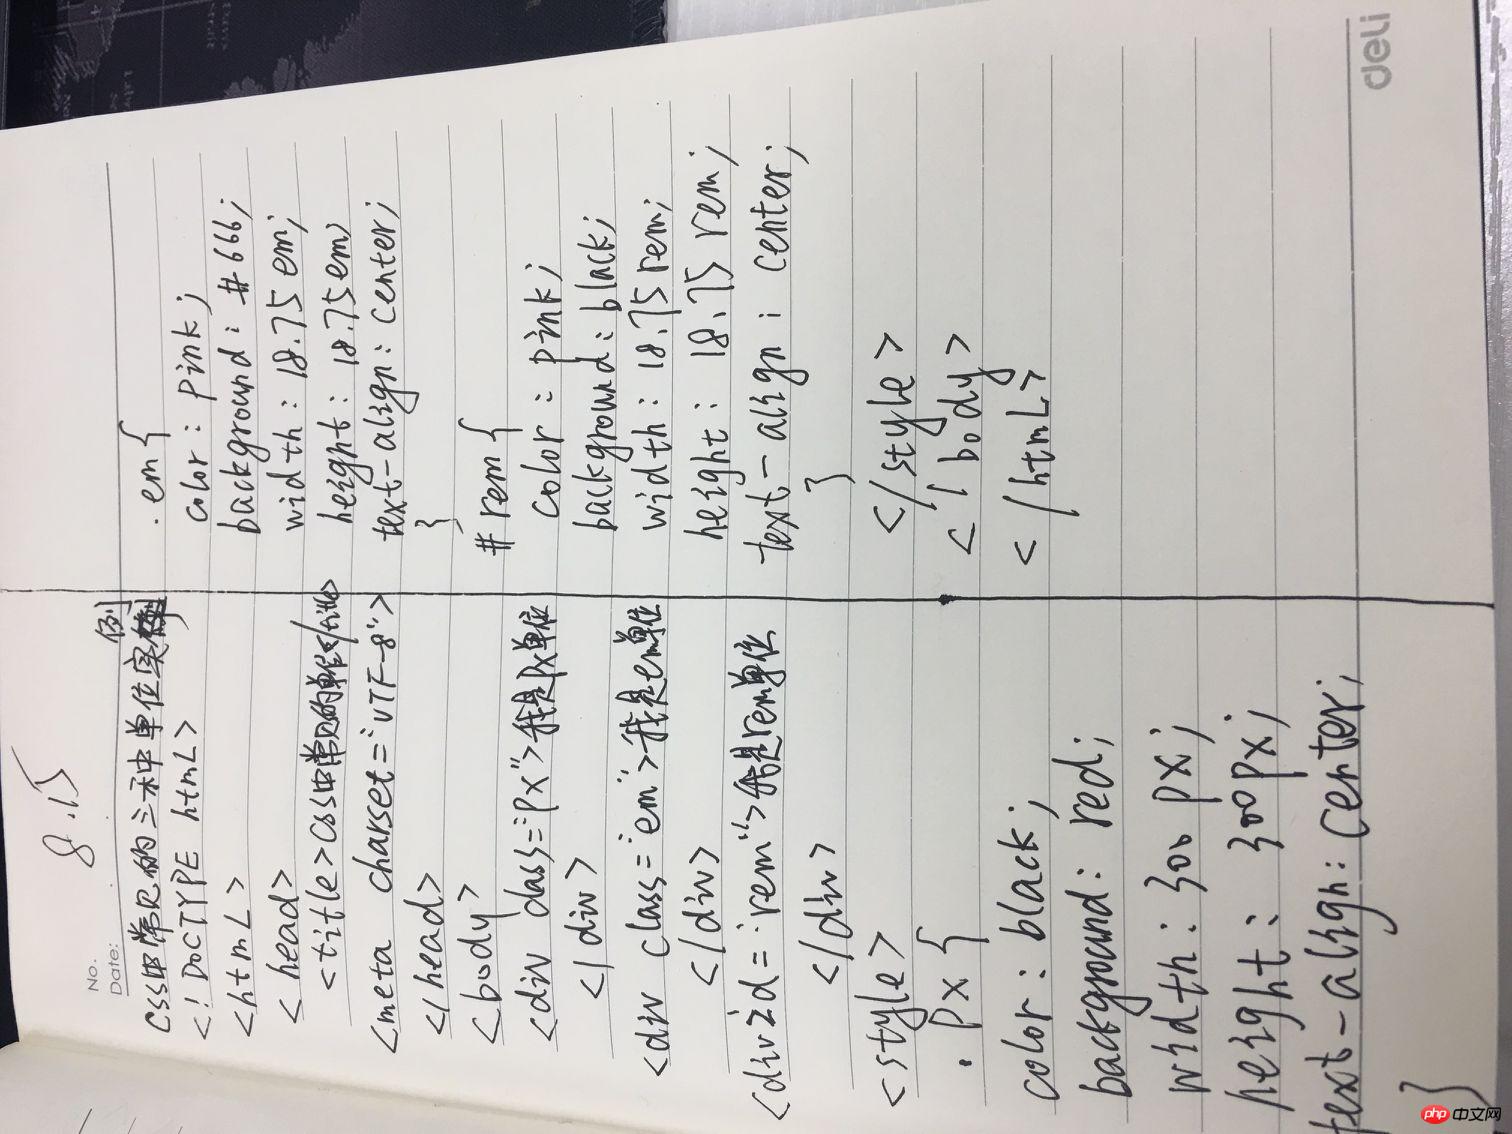 No.
Date:
8.15
CSS中常见的三种中单位实例
例
<!DOCTYPE html>
<html>
<head>
<title>CSS中常见的单位</title>
<meta charset="UTF-8">
</head>
<body>
<div class="px">我是px单位
</div>
<div class="em">我是em单位
</div>
<div id="rem">我是rem单位
</div>
<style>
.px{
color:black;
background:red;
width:300px;
height:300px;
text-align:center;
}
.em{
color:pink;
background:#666;
width:18.75em;
height:18.75em;
text-align:center;
}
#rem{
color:pink;
background:black;
width:18.75rem;
height:18.75rem;
text-align:center;
}
</style>
</body>
</html>
deli
php中文网